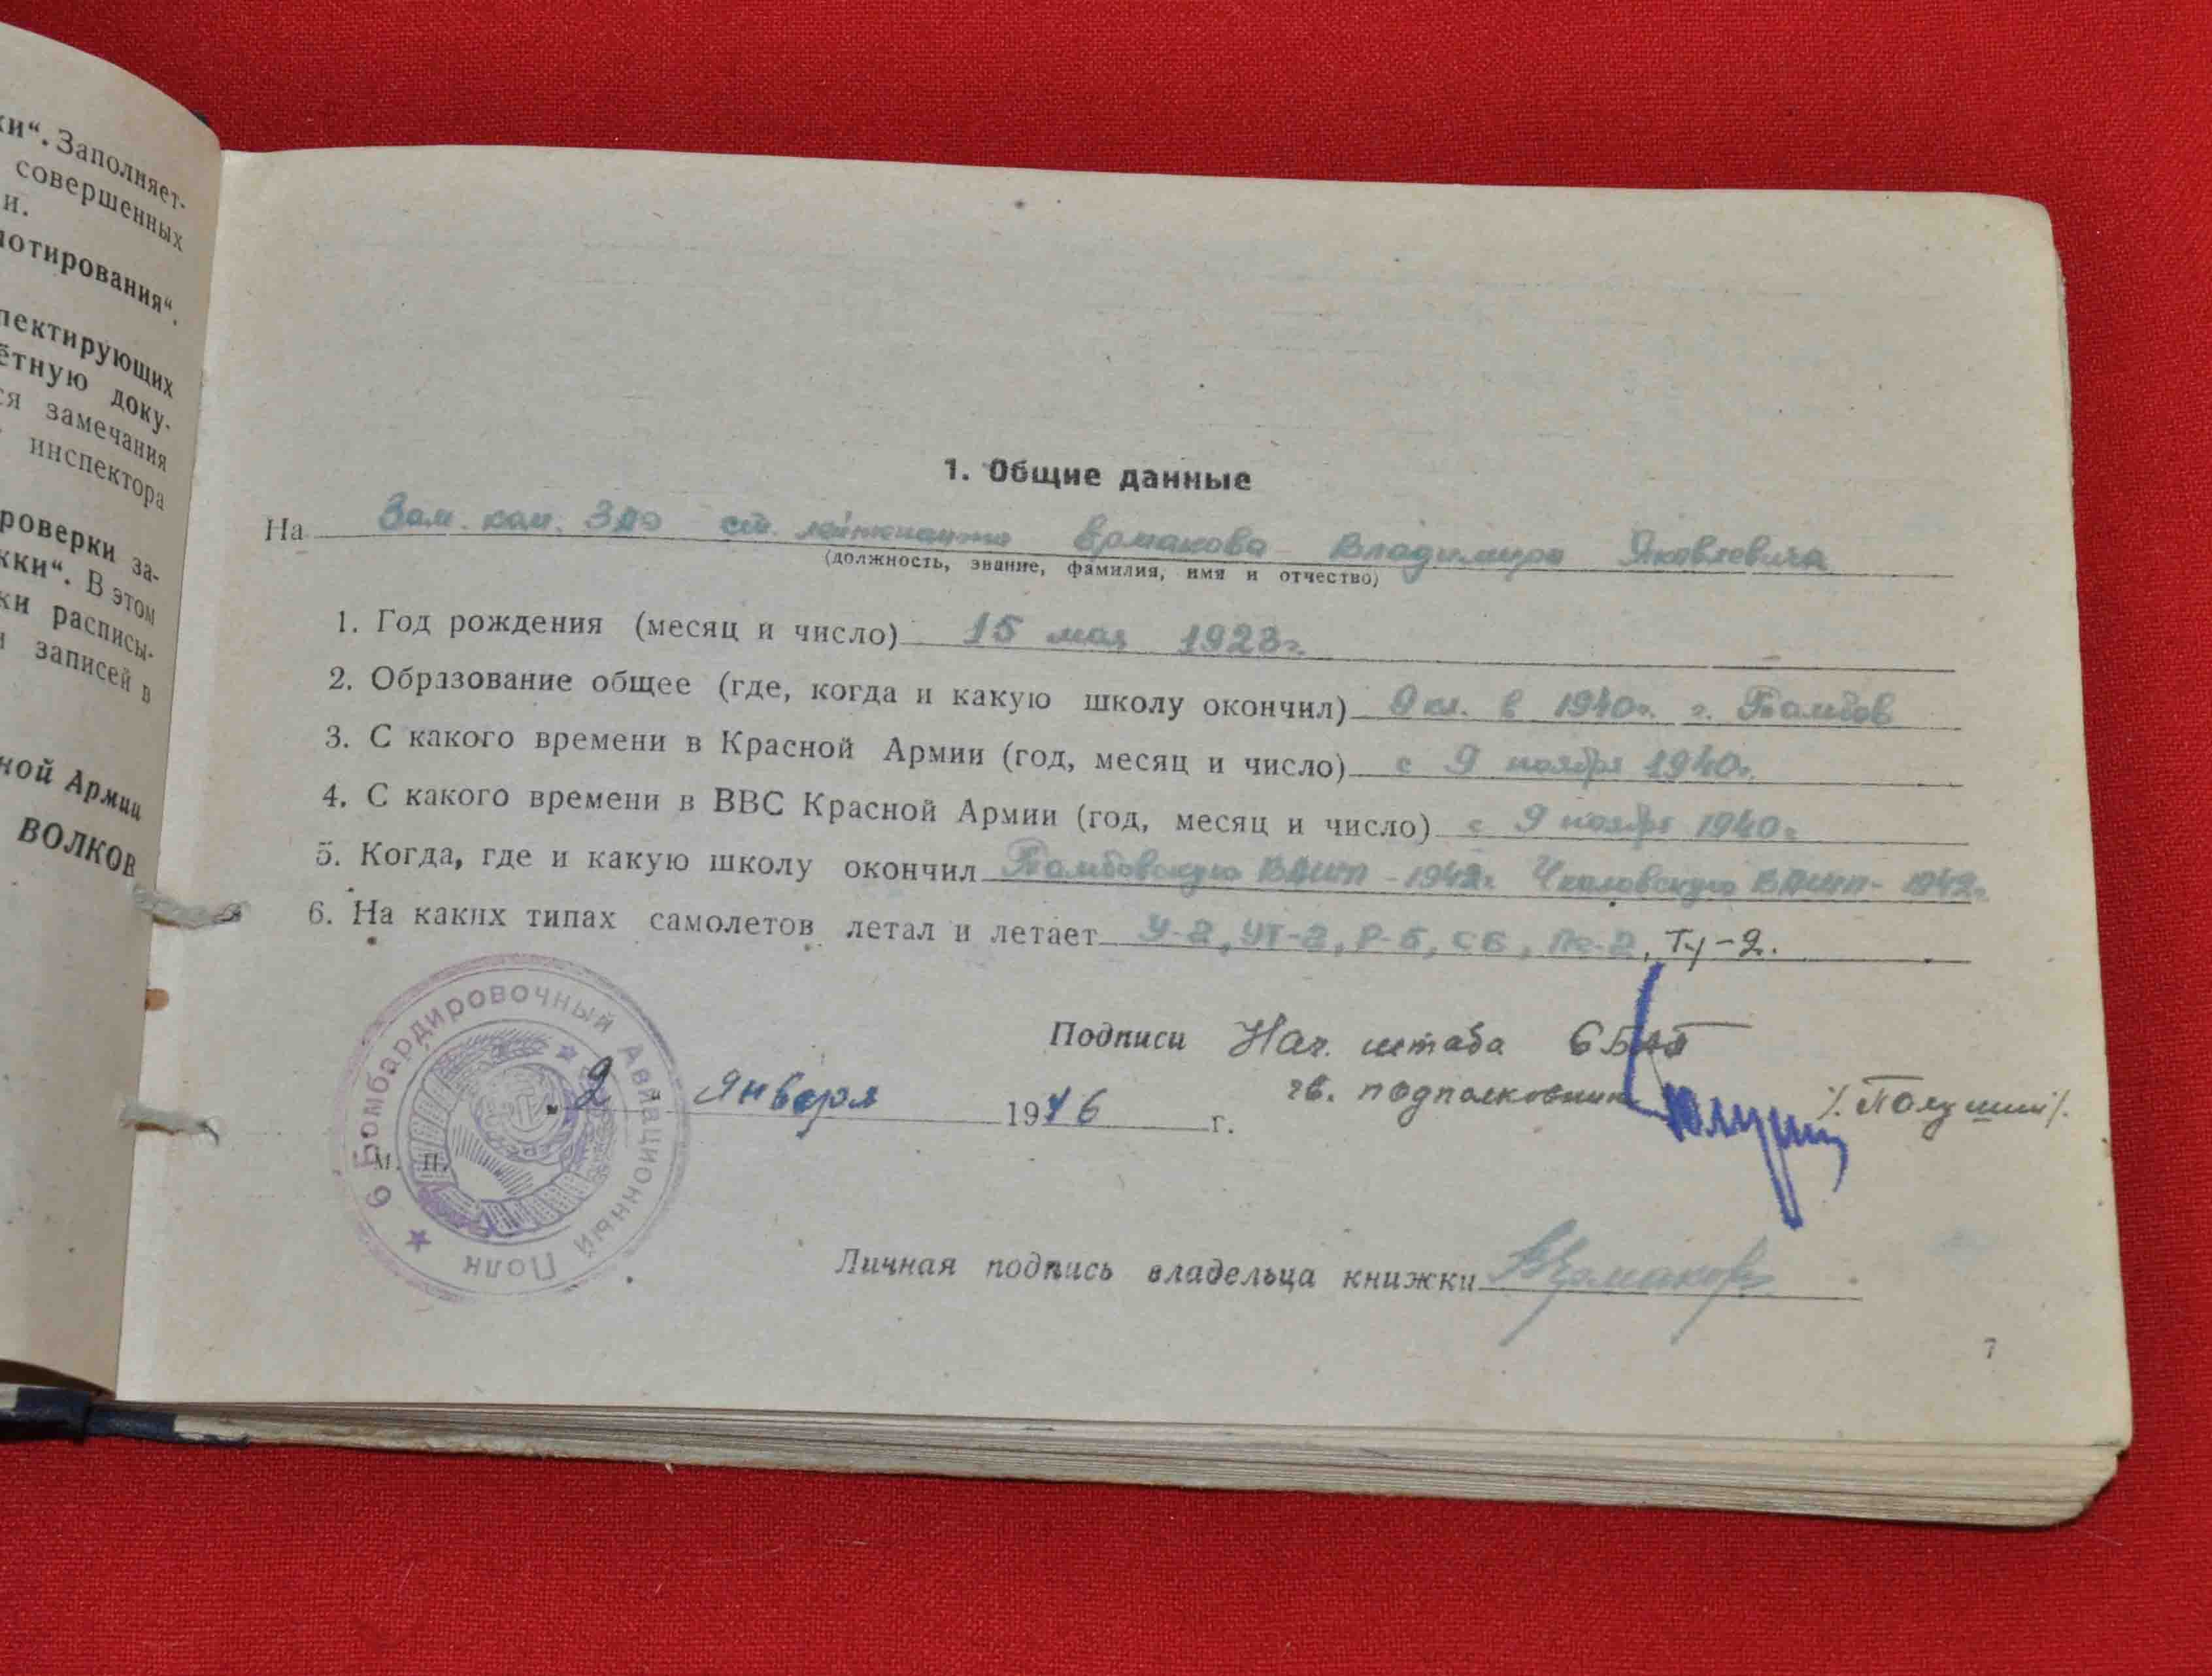 ки“. Заполняет-
совершенных
и.
лотирования“.
пектирующих
ётную доку-
ся замечания
инспектора
роверки за-
жки“. В этом
ки расписы-
и записей в
ной Армии
ВОЛКОВ
1. Общие данные
На Зам. ком. ст. лейтенанта Ермакова Владимира Яковлевича
(должность, звание, фамилия, имя и отчество)
1. Год рождения (месяц и число) 15 мая 1923г.
2. Образование общее (где, когда и какую школу окончил) 9 кл. в 1940г. г. Тамбов
3. С какого времени в Красной Армии (год, месяц и число) с 9 ноября 1940г.
4. С какого времени в ВВС Красной Армии (год, месяц и число) с 9 ноября 1940г.
5. Когда, где и какую школу окончил Тамбовскую ВАШП - 1942г. Чкаловскую - 1942г.
6. На каких типах самолетов летал и летает У-2, УТ-2, Р-5, СБ, Пе-2, Ту-2.
Подписи Нач. штаба 6 БАП
гв. подполковник
„2“ Января 1946 г.
М. П.
6 Бомбардировочный Авиационный Полк
Личная подпись владельца книжки ВЕрмаков
7